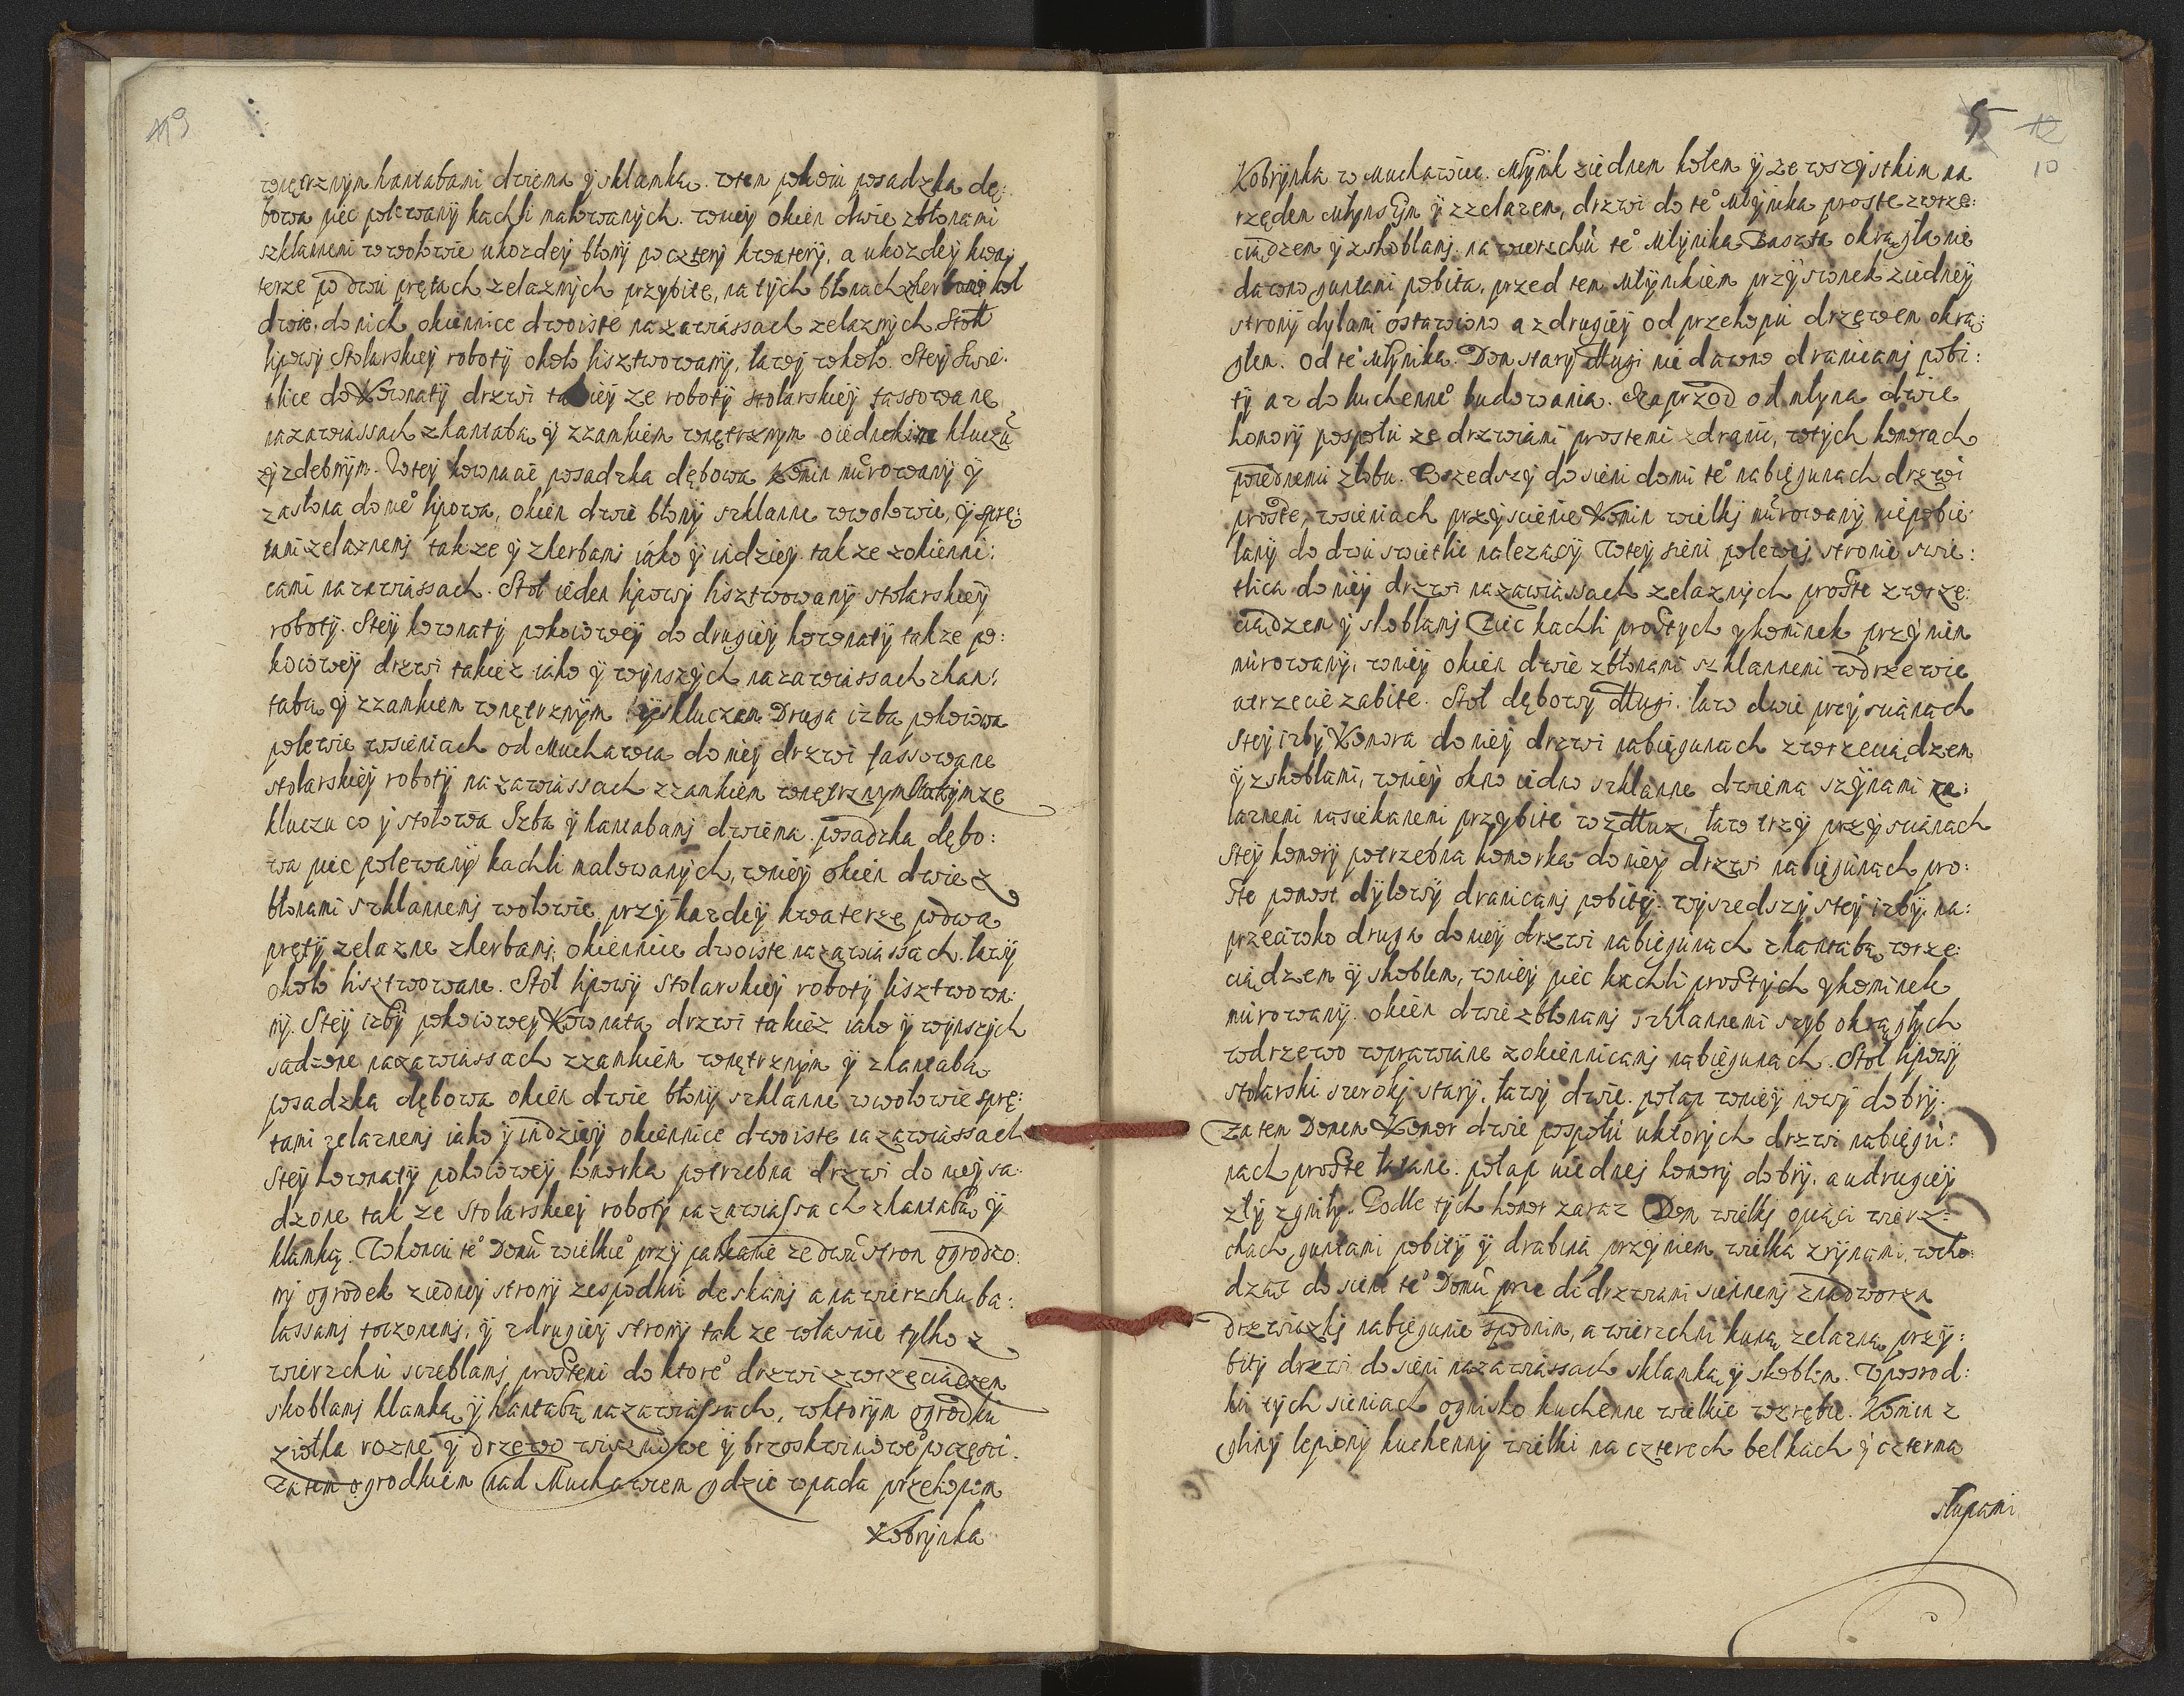 119
wnętrznym hantabami dwiema ÿ sklamką. wtem pokoiu posadzka dę:
bowa piec polewanÿ kachli malowanÿch. wnieÿ okien dwie zbłonami
szklannemi wwołowie ukozdeÿ błonÿ po czterÿ kwaterÿ, a ukozdeÿ kwa:
terze po dwu prętach zelaznÿch przybite, na tÿch błonach herbow
dwie, do nich okiennice dwoiste nazawiassach zelaznÿch Stoł
lipowÿ Stolarskieÿ robotÿ około lisztwowanÿ, ławÿ wkoło. Steÿ Swie:
tlice do Kownatÿ drzwi takieÿ ze robotÿ stolarskieÿ fassowane
nazawiassach zhantabą ÿ zzamkiem wnętrznÿm oiednakim kluczu
ÿ zdebnÿm. Wteÿ kownacie posadzka dębowa Komin murowanÿ ÿ
zasłona do nie° lipowa, okien dwie błonÿ szklanne wwołowie, ÿ sprę:
tami zelaznemj takze ÿ zherbami iako ÿ indzieÿ. takze zokienni:
cami nazawiassach. Stoł ieden lipowÿ lisztwowanÿ stolarskieÿ
robotÿ. Steÿ kownatÿ pokoioweÿ do drugieÿ kownatÿ takze po:
koioweÿ drzwi takiez iako ÿ wÿnszÿch nazawiassach zhan:
tabą ÿ zzamkiem wnętrznÿm ÿ skluczem Druga izba pokoiowa
polewie wsieniach od Muchawca do nieÿ drzwi fassowane
stolarskieÿ robotÿ nazawiassach zzamkiem wnętrznym takimze
kluczu co ÿ stołowa Izba ÿ hantabamj dwiema. posadzka dębo:
wa piec polewanÿ kachli malowanÿch, wnieÿ okien dwie z
błonami szklannemj wołowie, przÿ kazdeÿ kwaterze podwa
prętÿ zelazne zherbamj, okiennice dwoiste nazawiassach. ławÿ
około lisztwowane. Stoł lipowÿ Stolarskieÿ robotÿ lisztwowa:
nÿ. Steÿ izbÿ pokoioweÿ Kownata, drzwi takiez iako ÿ wÿnszÿch
sadzone nazawiassach zzamkiem wnętrznÿm ÿ zhantabą
posadzka dębowa okien dwie błonÿ szklanne wwołowie sprę:
tami zelaznemj iako ÿ indzieÿ okiennice dwoiste nazawiassach
Steÿ kownatÿ pokoioweÿ komorka potrzebna drzwi do nieÿ sa:
dzone, tak ze stolarskieÿ robotÿ nazawiassach zhantabą ÿ
klamką. Wkoncu te° Domu wielkie° przÿ parkanie ze dwu stron ogrodzo:
nÿ ogrodek ziedneÿ stronÿ zespodku deskamj a nawierzchu ba:
lassamj toczonemj, ÿ zdrugieÿ stronÿ tak ze własnie tylko z
wierzchu sczeblamj prostemi do ktore° drzwi zwrzeciądzem
skoblamj klamką ÿ hantabą nazawiassach, wktorÿm ogrodku
ziołka rozne ÿ drzewo wisznowe ÿ brzoskwiniowe poczęsci.
Zatem ogrodkiem nad Muchawcem gdzie wpada przekopem
Kobrÿnka

5 12
10
Kobrÿnka w Muchawiec. Młÿnik ziednem kołem ÿ ze wszÿstkim na
rzędem Młÿnskÿm ÿ zzelazem, drzwi do te° Młÿnika proste zwrze:
ciądzem ÿ zskoblamj. na wierzchu te° Młÿnika Baszta okrągła nie
dawno guntami pobita, przed tem Młÿnkiem przÿsionek ziedneÿ
stronÿ dylami ostawiono a zdrugieÿ od przekopu drzewem okrą:
głem. Od te° Młÿnika. Dom starÿ długi nie dawno dranicamj pobi:
tÿ az do kuchenne° budowania. Naprzod od młyna dwie
komorÿ pospołu ze drzwiami prostemi zdranic, wtÿch komorach
poiednemu złobu. Wszedszÿ do sieni domu te° nabiegunach drzwi
proste, wsieniach przÿ scienie Komin wielkj murowanÿ niepobie:
lanÿ do dwu swietlic nalezącÿ Wteÿ sieni polewej stronie swie:
tlica do nieÿ drzwi nazawiassach zelaznÿch proste zwrze:
ciądzem ÿ skoblamj Piec kachli prostÿch ÿ kominek przÿ niem
murowanÿ, wnieÿ okien dwie zbłonami szklannemi wdrzewie
atrzecie zabite. Stoł dębowÿ długi. ław dwie przÿscianach
Steÿ izbÿ Komora do nieÿ drzwi nabiegunach zwrzeciądzem
ÿ zskoblami, wnieÿ okno iedno szklanne dwiema szÿnami ze:
laznemi nasiekanemi przÿbite wzdłuz, ław trzÿ przÿscianach
Steÿ komorÿ potrzebna komorka do nieÿ drzwi nabiegunach pro:
ste pomost dÿlowÿ dranicamj pobitÿ. wÿszedszÿ steÿ izbÿ na:
przeciwko druga do nieÿ drzwi nabiegunach zhantabą, wrze:
ciądzem ÿ skoblem, wnieÿ piec kachli prostÿch ÿ kominek
murowanÿ. okien dwie zbłonamj szklannemi szyb okrągłÿch
wdrzewo wprawiane zokiennicamj nabiegunach. Stoł lipowÿ
stolarski szerokj starÿ, ławÿ dwie. połap wnieÿ nowÿ dobrÿ.
Zatem Domem Komor dwie pospołu uktorÿch drzwi nabiegu:
nach proste łatane. połap uiednej komorÿ dobrÿ, a udrugieÿ
złÿ zgniłÿ. Podle tÿch komor zaraz Dom wielkj opiąci wierz:
chach, guntami pobitÿ ÿ drabina przÿ niem wielka zrÿnami, wcho:
dząc do sieni te° Domu przedi drzwiami siennemj znadworza
drzwiczkj nabiegunie spodnim, awierzchni kuną zelazną przÿ:
bitÿ drzwi do sieni nazawiassach sklamką ÿ skoblem. Wposrod:
ku tÿch sieniach ognisko kuchenne wielkie wzrębie. Komin z
glinÿ lepionÿ kuchennÿ wielki na czterech belkach ÿ czterma
słupami